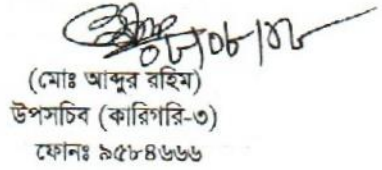 ০৮/০৮/১৮
(মোঃ আব্দুর রহিম)
উপসচিব (কারিগরি-৩)
ফোনঃ ৯৫৮৪৬৬৬